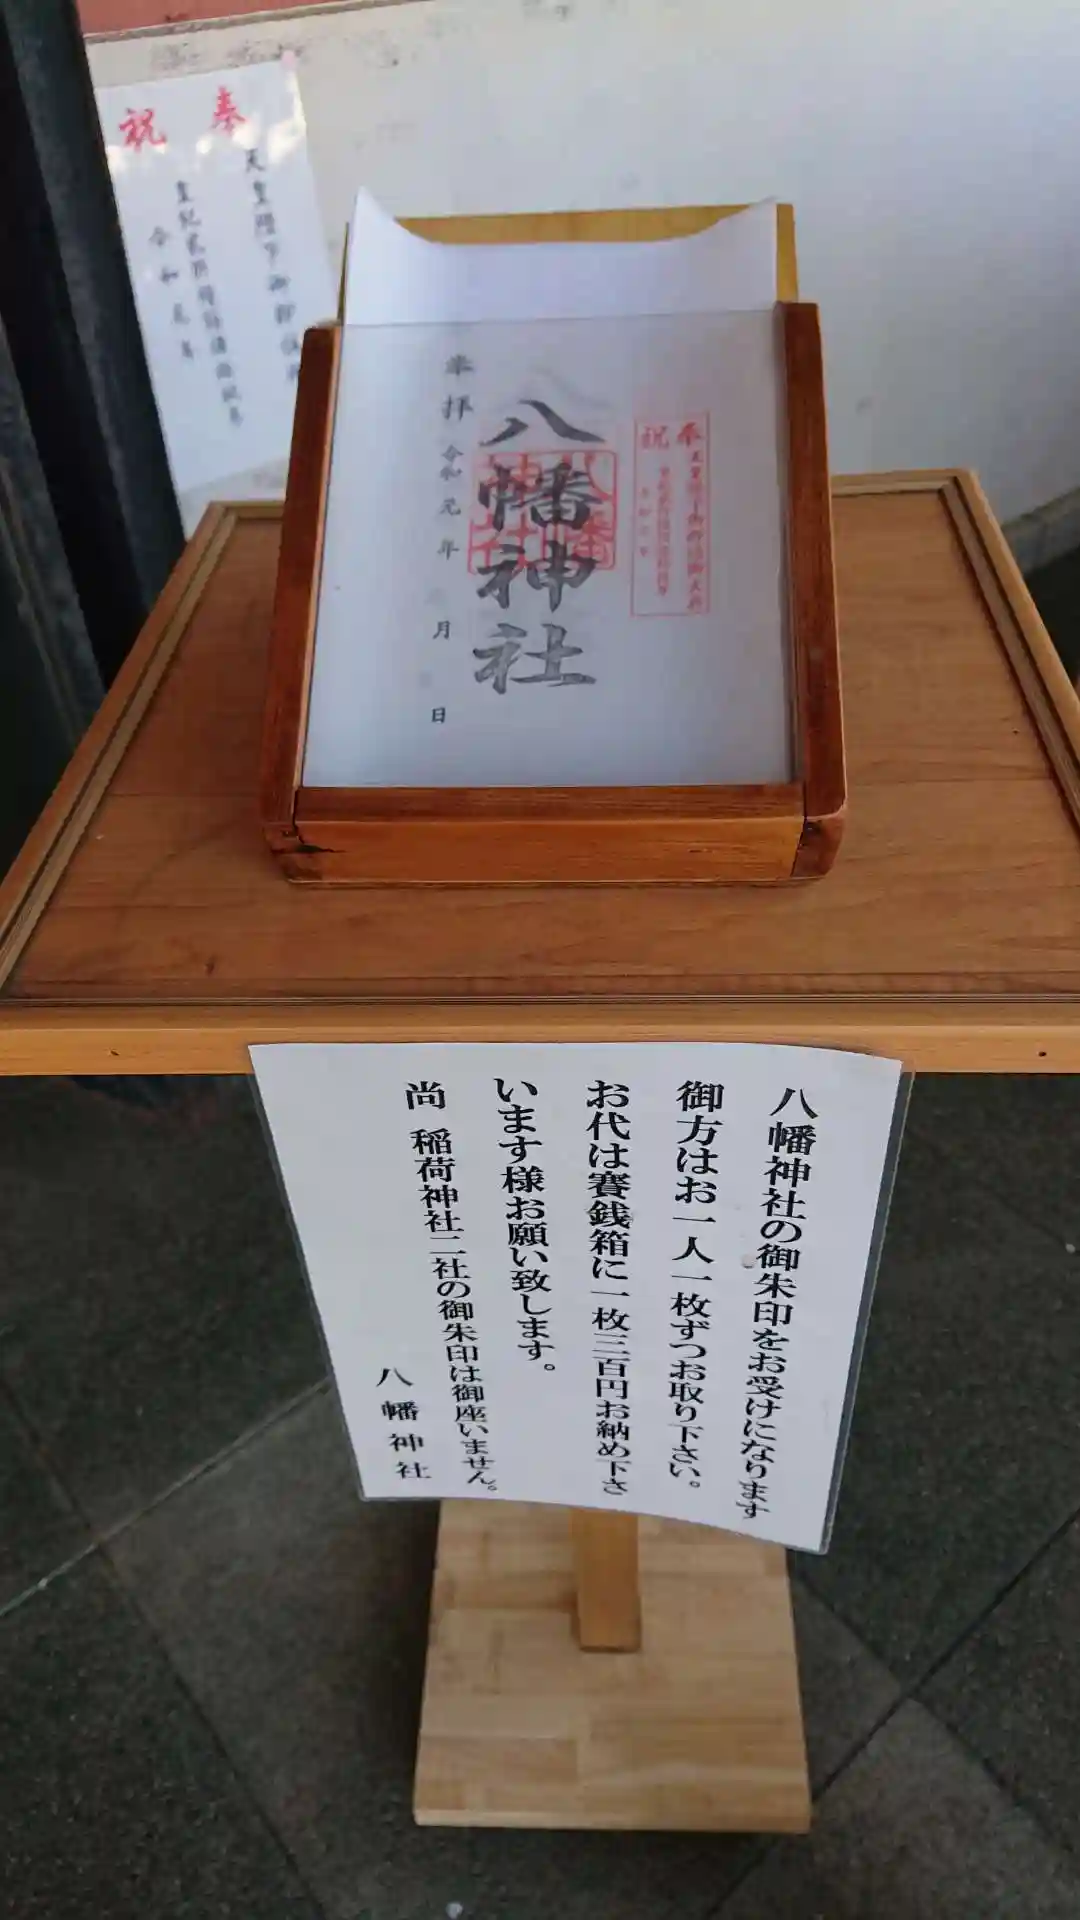 奉祝
天皇陛下御即位
令和元年
八幡神社
奉拝
令和元年
月
日
八幡神社
奉祝
八幡神社の御朱印をお受けになります
御方はお一人一枚ずつお取り下さい。
お代は賽銭箱に一枚三百円お納め下さ
います様お願い致します。
尚 稲荷神社二社の御朱印は御座いません。
八幡神社